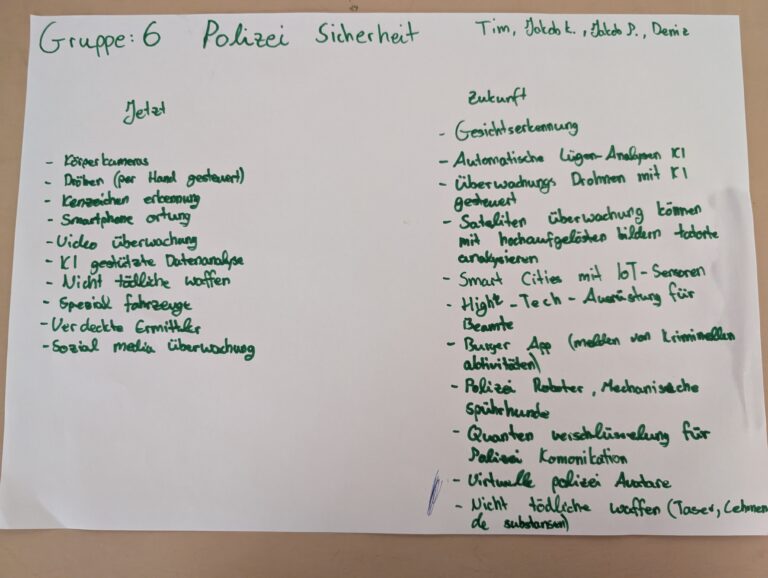 Gruppe: 6 Polizei Sicherheit Tim, Jakob K., Jakob P., Deniz
Jetzt
- Körperkameras
- Drohen (per Hand gesteuert)
- Kenzeichen erkennung
- Smartphone ortung
- Video überwachung
- KI gestützte Datenanalyse
- Nicht tödliche waffen
- Spezial fahrzeuge
- Verdeckte Ermittler
- Sozial media überwachung
Zukunft
- Gesichtserkennung
- Automatische Lügen-Analysen KI
- Überwachungs Drohnen mit KI
gesteuert
- Sateliten überwachung können
mit hochaufgelösten bildern tatorte
analysieren
- Smart Cities mit IoT-Sensoren
- Hight-Tech-Ausrüstung für
Beamte
- Bürger App (melden von Kriminellen
aktivitäten)
- Polizei Roboter, Mechanische
spührhunde
- Quanten verschlüsselung für
Polizei Komonikation
- Virtuelle polizei Avatare
- Nicht tödliche waffen (Taser, Lehmen
de substansen)